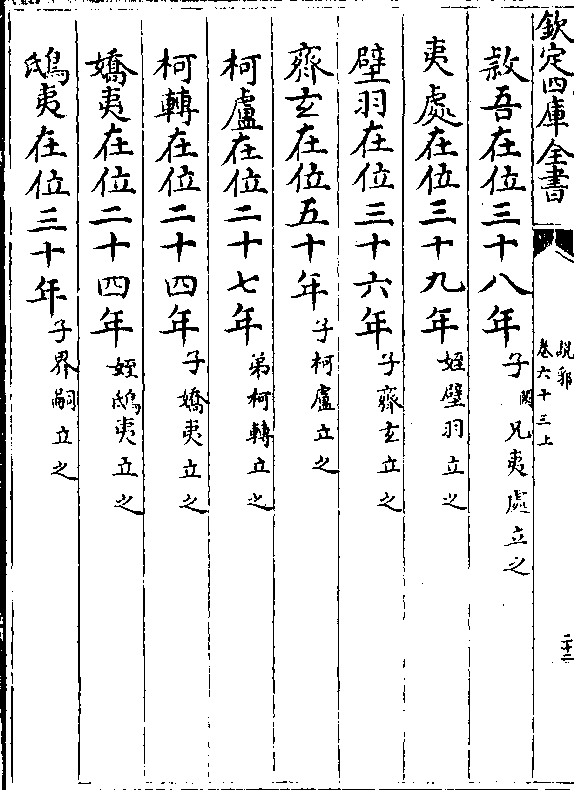 欽定四庫全書
說郛
卷六十三上
二十二
敘吾在位三十八年子闕兄夷處立之
夷處在位三十九年姪壁羽立之
壁羽在位三十六年子齊玄立之
齊玄在位五十年子柯盧立之
柯盧在位二十七年弟柯轉立之
柯轉在位二十四年子嬌夷立之
嬌夷在位二十四年姪鴟夷立之
鴟夷在位三十年子界嗣立之